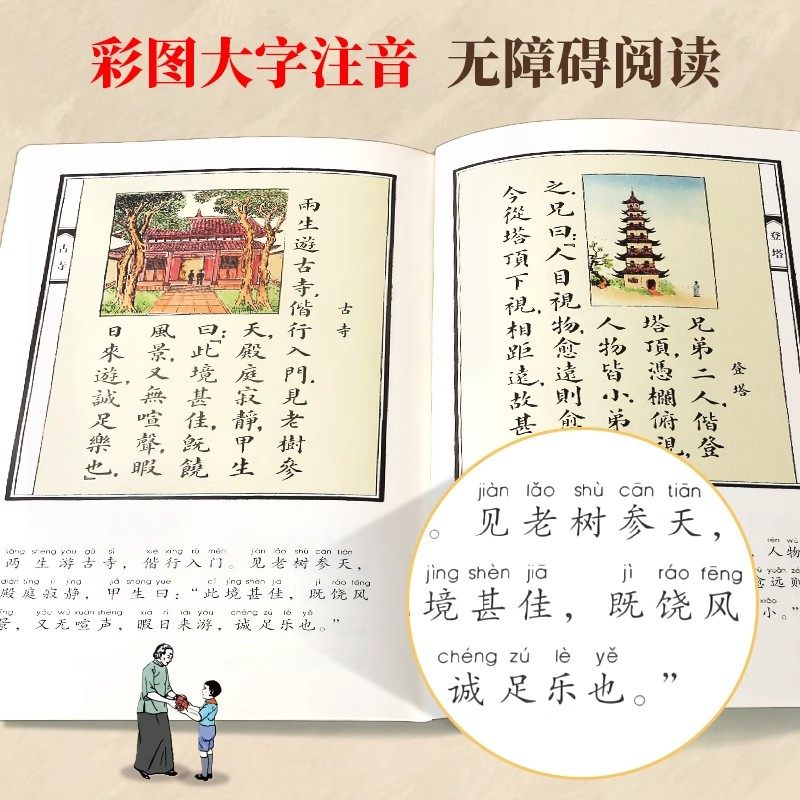 彩图大字注音 无障碍阅读
古寺
古寺
兩生遊古寺,偕行入門.見老樹參
天,殿庭寂靜,甲生
曰:「此境甚佳,旣饒
風景,又無喧聲,暇
日來遊,誠足樂也」.
登塔
登塔
兄弟二人,偕登
塔頂,憑欄俯視,
人物皆小.弟
之.兄曰:「人目視物,愈遠則愈
今從塔頂下視,相距遠,故甚
liǎng shēng yóu gǔ sì xié xíng rù mén jiàn lǎo shù cān tiān
两生游古寺，偕行入门。见老树参天，
diàn tíng jì jìng jiǎ shēng yuē cǐ jìng shèn jiā jì ráo fēng
殿庭寂静，甲生曰：“此境甚佳，既饶风
jǐng yòu wú xuān shēng xiá rì lái yóu chéng zú lè yě
景，又无喧声，暇日来游，诚足乐也。”
jiàn lǎo shù cān tiān
。见老树参天，
jìng shèn jiā jì ráo fēng
境甚佳，既饶风
chéng zú lè yě
诚足乐也。”
rén wù
，人物
yuǎn zé
愈远则
xiǎo
小。”